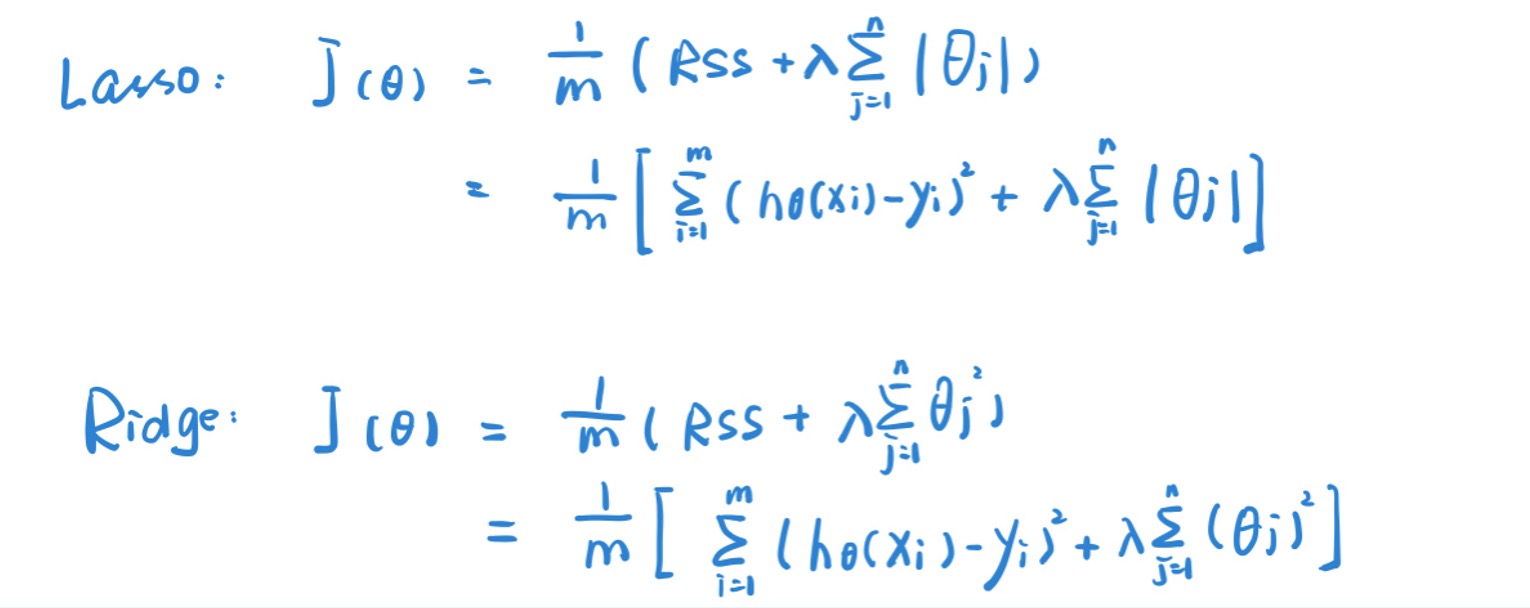 Lasso: J(θ) = 1/m (RSS + λ∑_{j=1}^{n} |θj|)
= 1/m [∑_{i=1}^{m} (hθ(xi)-yi)² + λ∑_{j=1}^{n} |θj|]
Ridge: J(θ) = 1/m (RSS + λ∑_{j=1}^{n} θj²)
= 1/m [∑_{i=1}^{m} (hθ(xi)-yi)² + λ∑_{j=1}^{n} (θj)²]